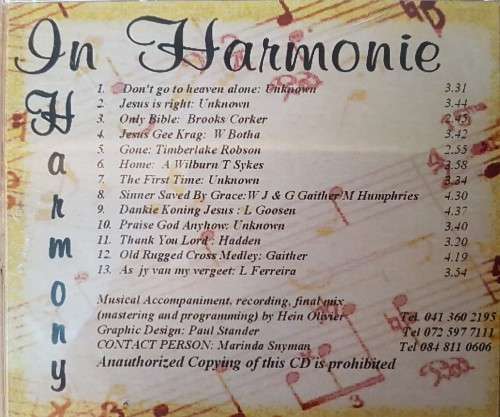 In Harmonie
Harmony
1. Don't go to heaven alone: Unknown 3.31
2. Jesus is right: Unknown 3.44
3. Only Bible: Brooks Corker 2.45
4. Jesus Gee Krag: W Botha 3.42
5. Gone: Timberlake Robson 2.55
6. Home: A Wilburn T Sykes 3.58
7. The First Time: Unknown 3.34
8. Sinner Saved By Grace:W J & G Gaither/M Humphries 4.30
9. Dankie Koning Jesus : L Goosen 4.37
10. Praise God Anyhow: Unknown 3.40
11. Thank You Lord : Hadden 3.20
12. Old Rugged Cross Medley: Gaither 4.19
13. As jy van my vergeet: L Ferreira 3.54
Musical Accompaniment, recording, final mix
(mastering and programming) by Hein Olivier Tel. 041 360 2195
Graphic Design: Paul Stander Tel 072 597 7111
CONTACT PERSON: Marinda Snyman Tel 084 811 0606
Anauthorized Copying of this CD is prohibited